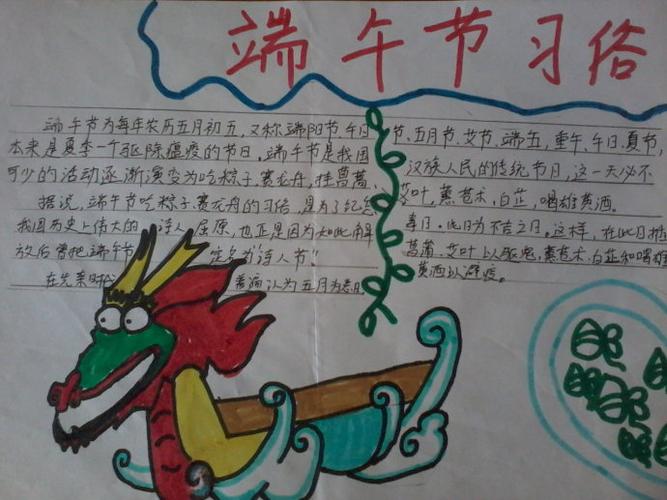 端午节习俗
端午节为每年农历五月初五，又称端阳节、午日节、五月节、艾节、端五，重午、午日、夏节，
本来是夏季一个驱除瘟疫的节日。端午节是我国汉族人民的传统节日，这一天必不
可少的活动逐渐演变为吃粽子，赛龙舟，挂菖蒲、艾叶，薰苍术、白芷，喝雄黄酒。
据说，端午节吃粽子，赛龙舟的习俗，是为了纪念
我国历史上伟大的诗人屈原，也正是因为如此解
放后曾把端午节定名为“诗人节”
在先秦时 普遍认为五月为毒月
毒日。此日为不吉之日。这样，在此日插
菖蒲、艾叶以驱鬼，薰苍术、白芷和喝雄
黄酒以避疫。